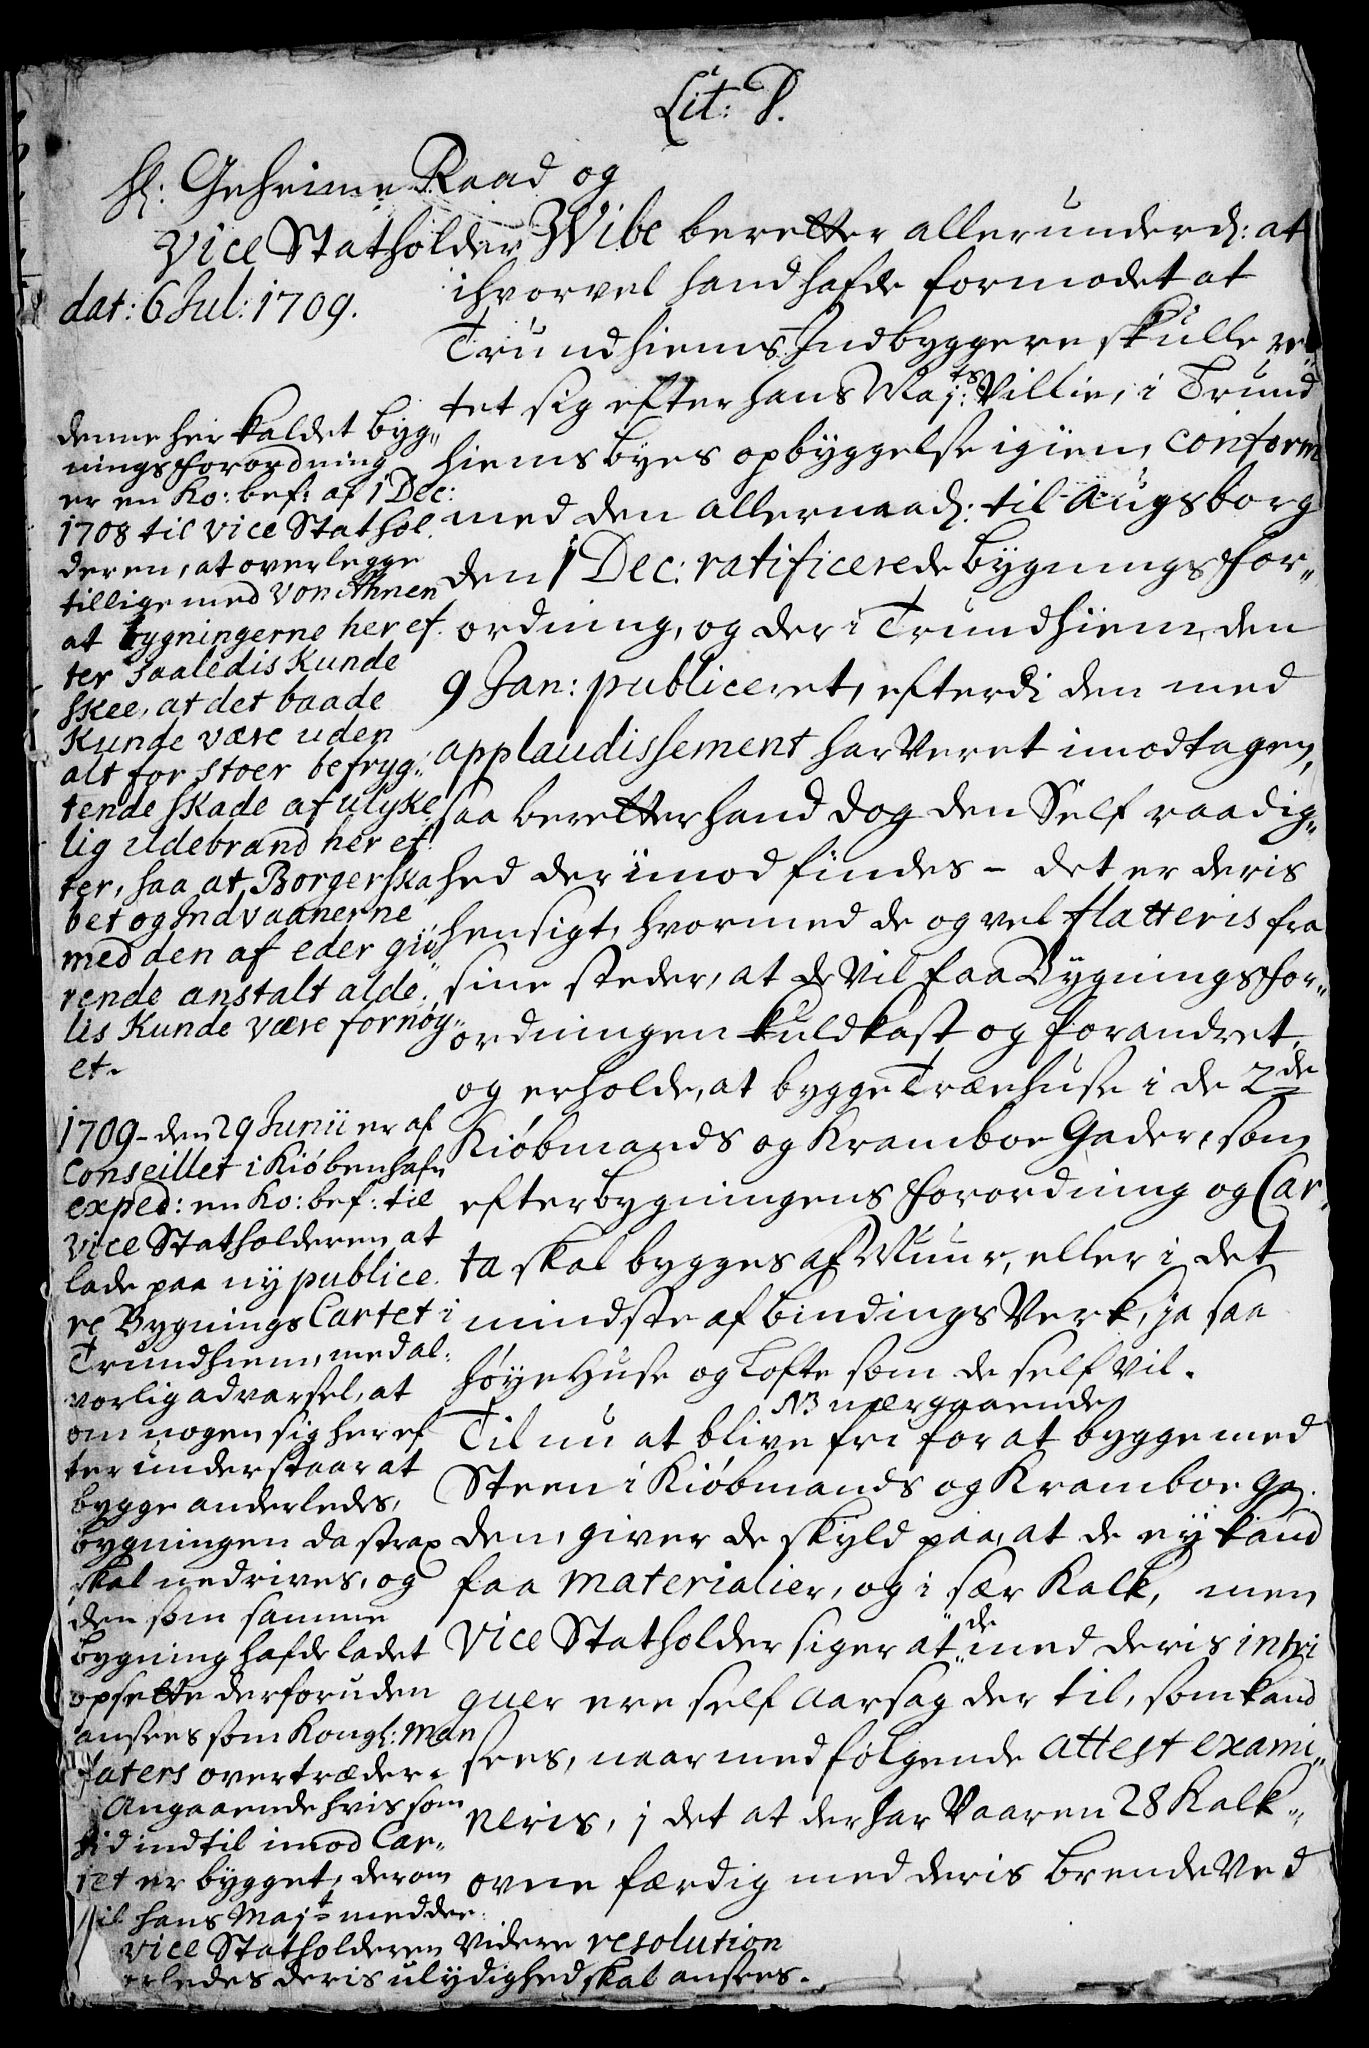 Lit: P.
Hl: Geheime Raad og
Vice Statholder Wibe beretter allerunderd: at
dat: 6 Jul: 1709.
ihvorvel hand hafde formodet at
Trundhiems Indbyggere skulle ret¬
tet sig efter hans Maj:ts Villie, i Trund
hiems byes opbyggelse igien, conform
med den allernaad: til Augsborg
den 1 Dec: ratificerede bygnings for„
ordning, og der i Trundhiem, den
9 Jan: publiceret, efterdi den med
applaudissement har veret imodtagen,
saa beretter hand dog den Self raadig„
hed der imod findes - det er deris
hensigt, hvormed de og vel flatteris fra
sine steder, at de vil faa Bygnings for„
ordningen kuldkast og forandret,
og erholde, at bygge Træehuse i de 2de
Kiøbmands og Kramboe Gader, som
efter bygningens forordning og Car„
ta skal bygges af Muur, eller i det
mindste af bindings Verk, ja saa
høye Huse og Lofte som de self vil.
NB nærgaaende
Til nu at blive fri for at bygge med
Steen i Kiøbmands og Kramboe Ga.
den, giver de skyld paa, at de ey kand
faa materialier, og i sær Kalk, men
Vice Statholder siger at de med deris intri
guer ere self aarsag der til, som kand
sees, naar medfølgende attest exami„
neris, i det at der har Vaaren 28 Kalk„
ovne færdig med deris brende Ved
denne her kaldet byg„
nings forordning
er en Ko: bef: af 1 Dec:
1708 til Vice Stathol.
deren, at overlegge
tillige med Von Ahnen
at bygningerne her ef.
ter saaledis Kunde
skee, at det baade
Kunde være uden
alt for stoer befryg„
tende skade af ulyke
lig ildebrand her ef
ter, saa at Borgerska
bet og Indvaanerne
med den af eder giø
rende anstalt alde.
lis Kunde være fornøy„
et.
1709 - den 29 Junii er af
Conseillet i Kiøbenhafn
exped: en Ko: bef: til
Vice Statholderen at
lade paa ny publice.
re Bygnings Cartet i
Trundhiem, med al.
vorlig advarsel, at
om nogen sig her ef
ter understaar at
bygge anderledes,
bygningen da strax
skal nedrives, og
den som samme
bygning hafde ladet
opsette derforuden
ansees som Kongl: Man
daters overtræder.
Angaaende hvis som
hid indtil imod Car„
tet er bygget, derom
vil hans Majt meddee.
Vice Statholderen Videre resolution
erledes deris ulydighed skal ansees.